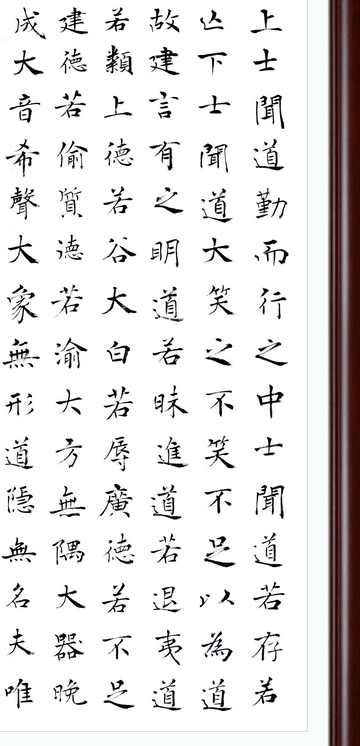 上士聞道勤而行之中士聞道若存若
亾下士聞道大笑之不笑不足以為道
故建言有之明道若昧進道若退夷道
若類上德若谷大白若辱廣德若不足
建德若偷質德若渝大方無隅大器晚
成大音希聲大象無形道隱無名夫唯